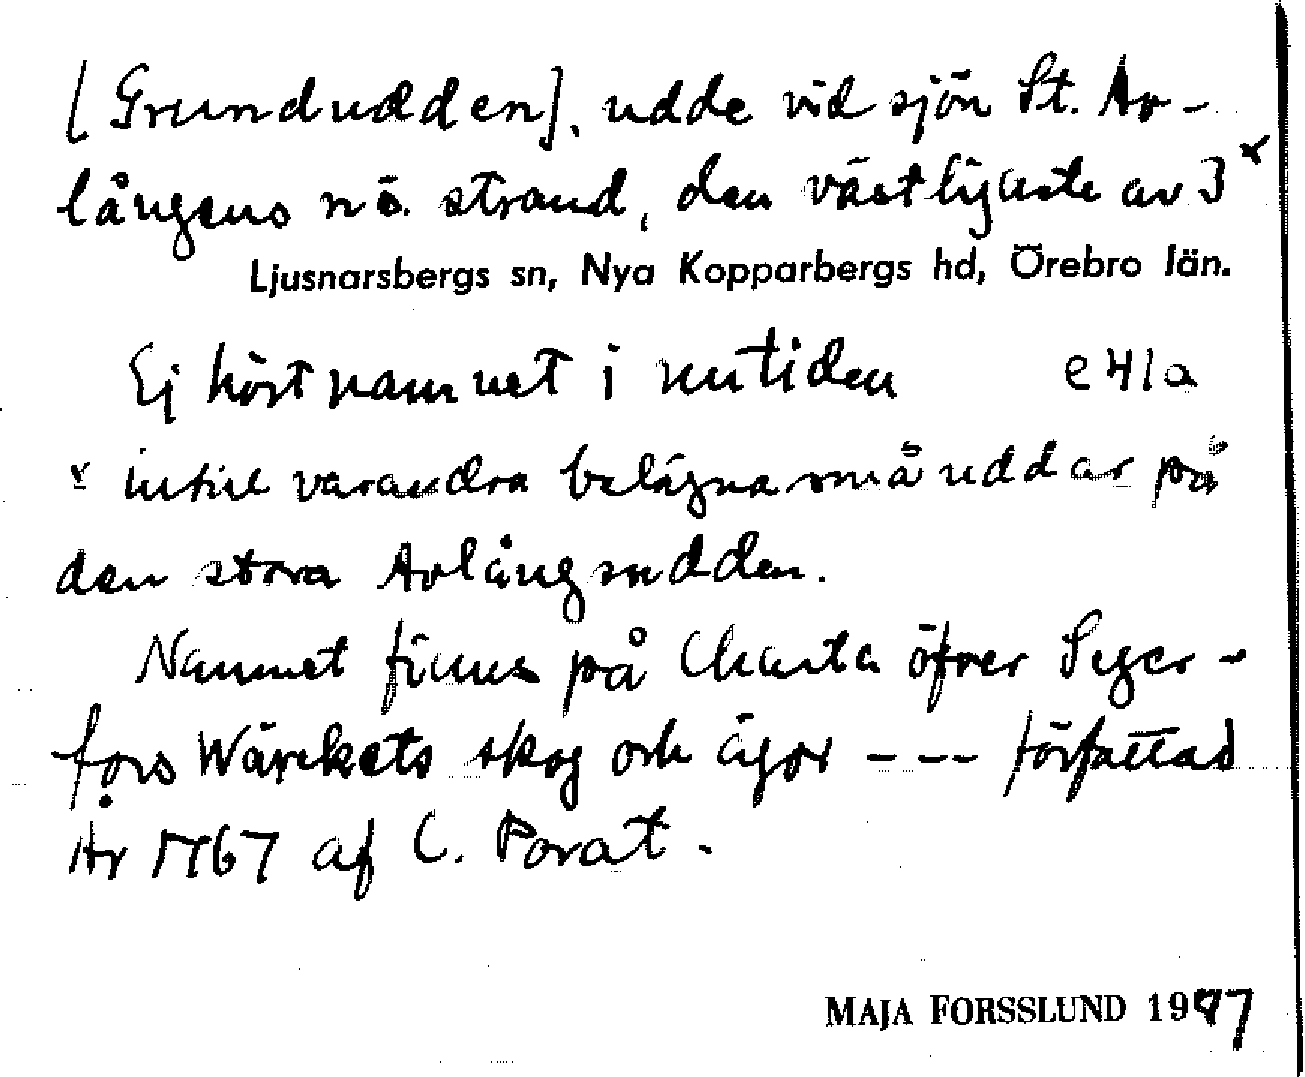 [Grundudden], udde vid sjön St. Av-
långens nö. strand, den västligaste av 3 x
Ljusnarsbergs sn, Nya Kopparbergs hd, Örebro län.
Ej hört namnet i nutiden e 41a
x intill varandra belägna små uddar på
den stora Avlångsudden.
Namnet finns på Charta öfver Seger-
fors Wärckets skog och ägor --- författad
År 1767 af C. Porat.
MAJA FORSSLUND 1977